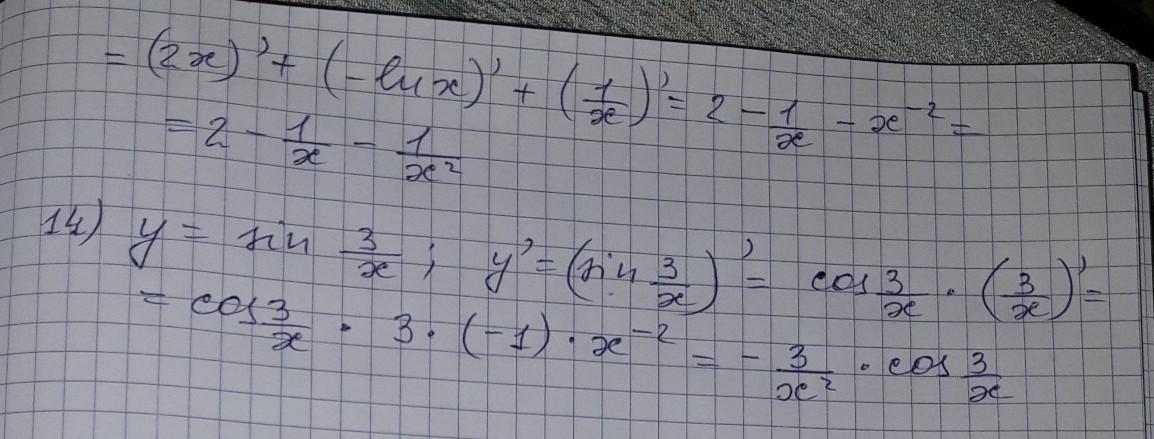 = (2x)' + (-ln x)' + (1/x)' = 2 - 1/x - x⁻² =
= 2 - 1/x - 1/x²
14) y = sin 3/x ; y' = (sin 3/x)' = cos 3/x · (3/x)' =
= cos 3/x · 3 · (-1) · x⁻² = - 3/x² · cos 3/x